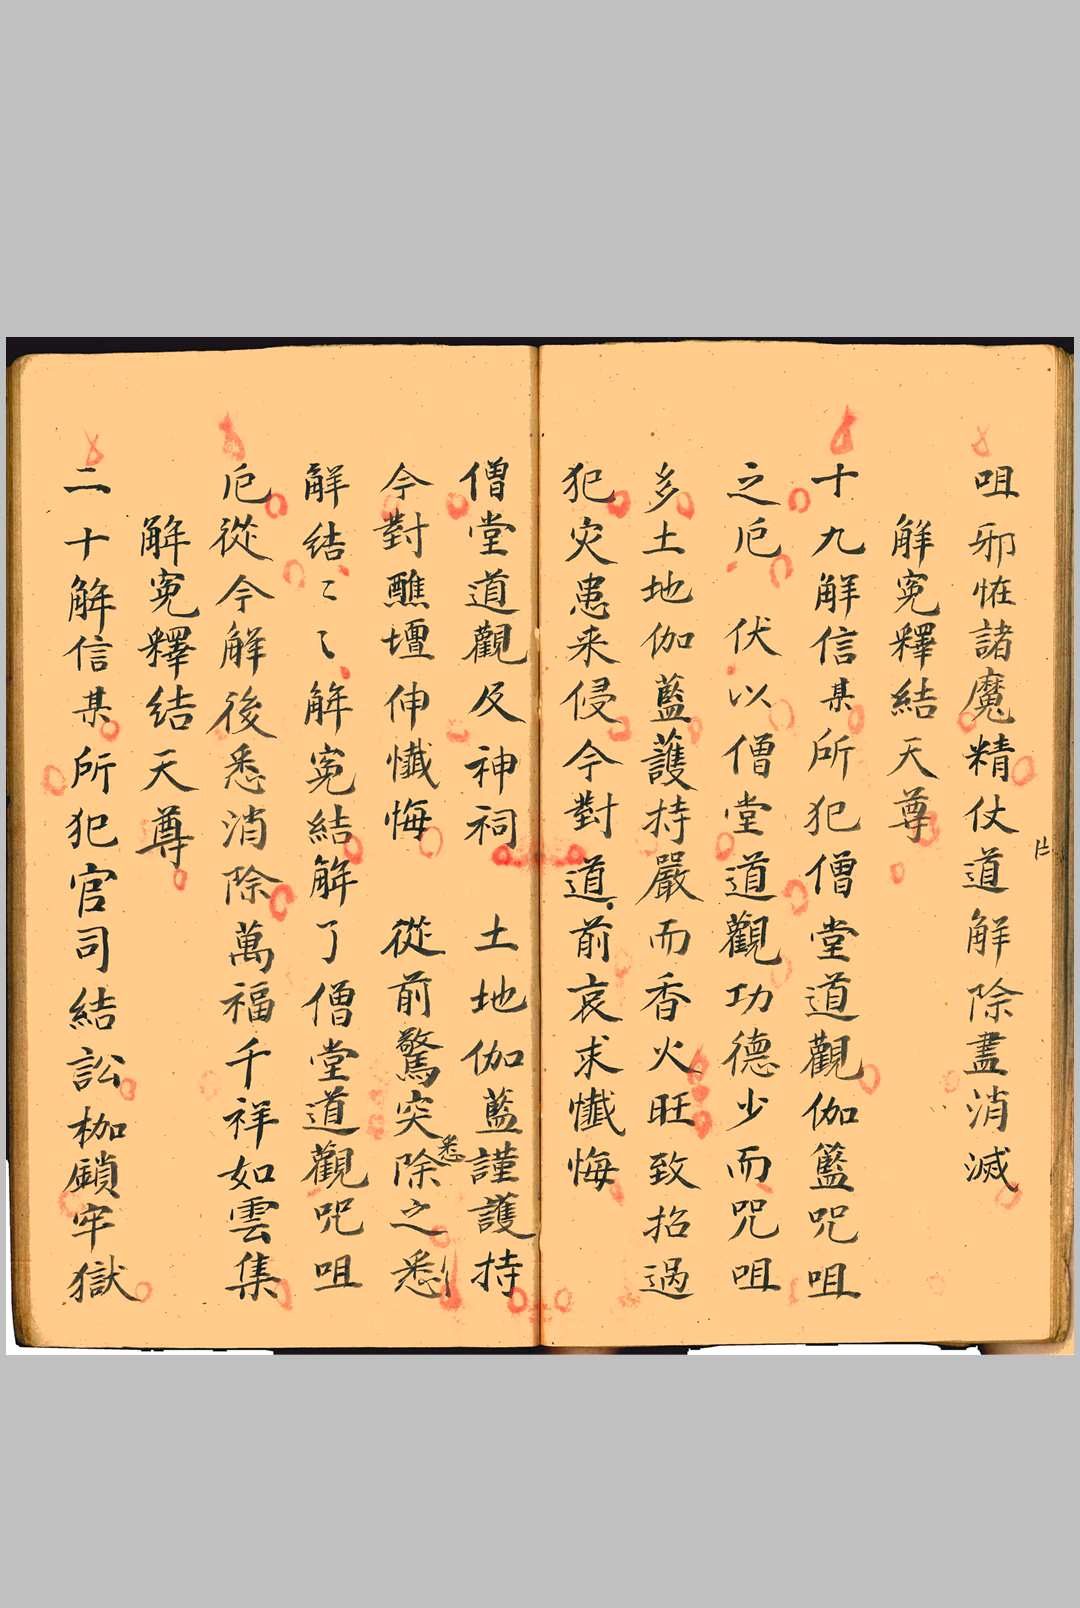 咀邪恠諸魔精仗道解除盡消滅
解寃釋結天尊
十九解信某所犯僧堂道觀伽籃咒咀
之厄 伏以僧堂道觀功德少而咒咀
多土地伽藍護持嚴而香火旺致招過
犯灾患来侵今對道前哀求懺悔
僧堂道觀及神祠 土地伽藍謹護持
今對醮壇伸懺悔 從前驚突除之悉
悉
解結〻〻解寃結解了僧堂道觀咒咀
厄從今解後悉消除萬福千祥如雲集
解寃釋結天尊
二十解信某所犯官司結訟枷鎖牢獄